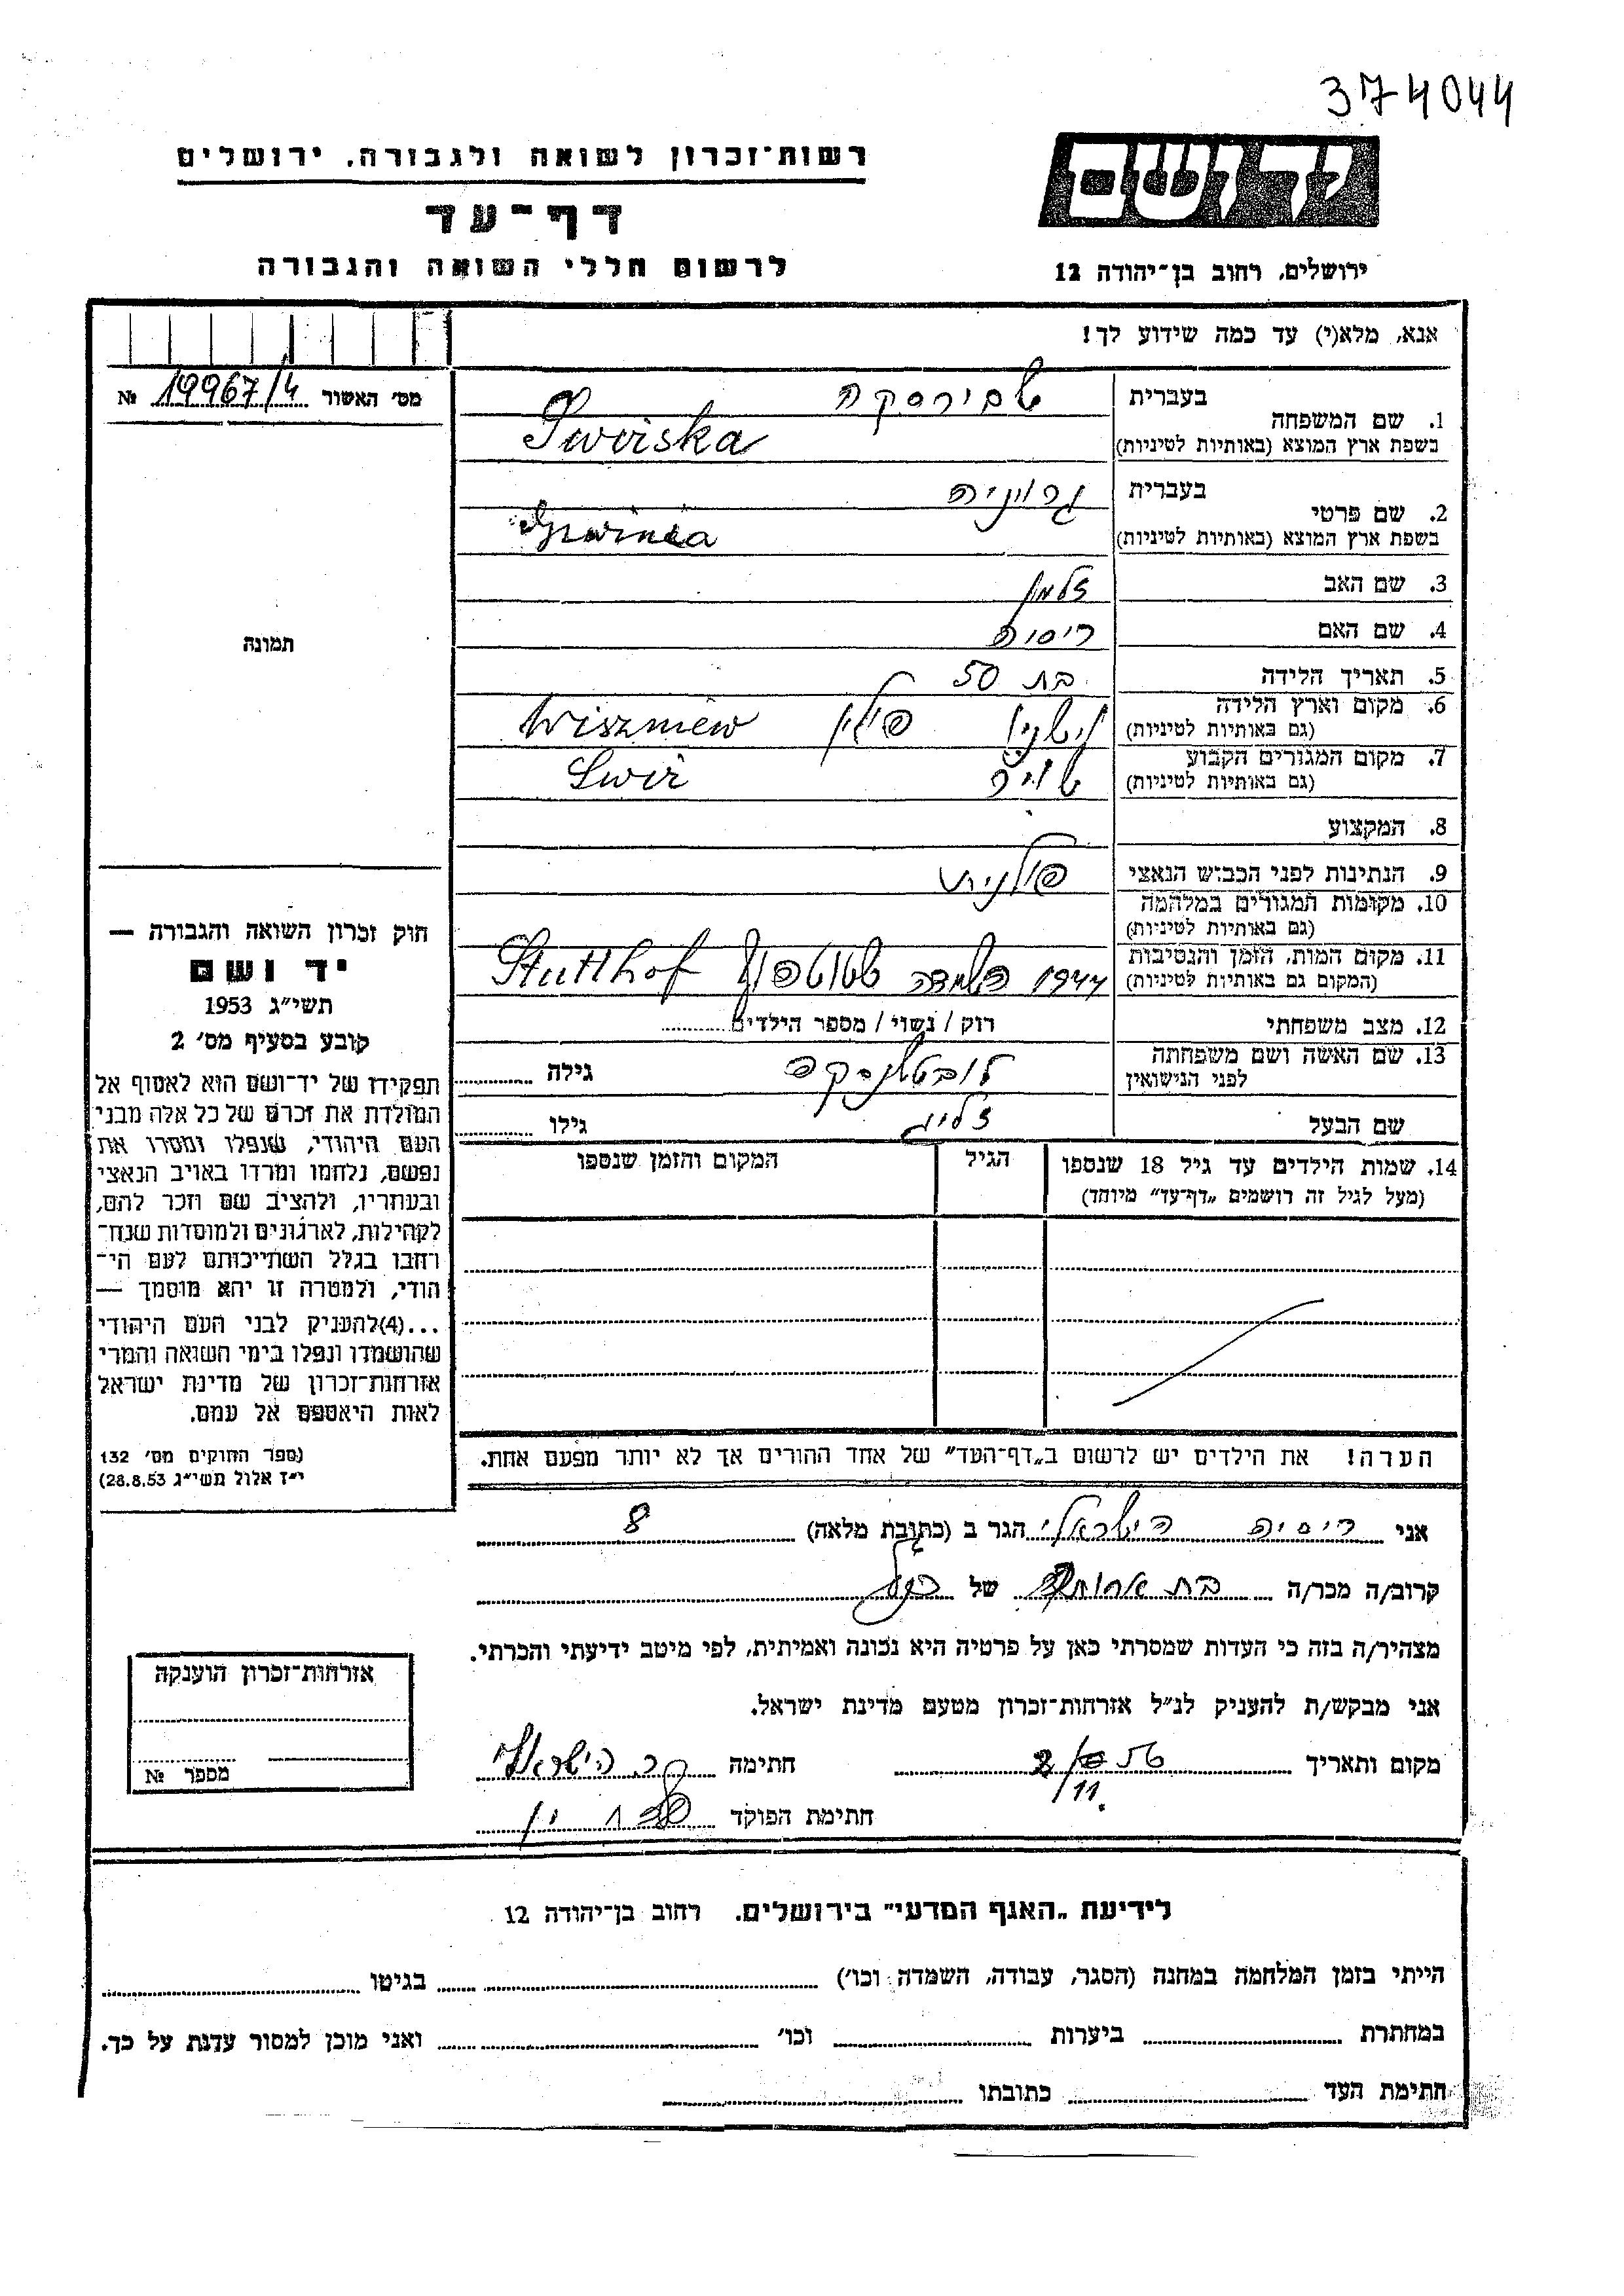 374044
יד ושם
רשות־זכרון לשואה ולגבורה, ירושלים
דף־עד
לרשום חללי השואה והגבורה
ירושלים, רחוב בן־יהודה 12
אנא, מלא(י) עד כמה שידוע לך!
מס׳ האשור 19967/4 №
תמונה
1. שם המשפחה
בעברית שבירסקה
בשפת ארץ המוצא (באותיות לטיניות) Swirska
2. שם פרטי
בעברית גרוניה
בשפת ארץ המוצא (באותיות לטיניות)
3. שם האב זלמן
4. שם האם ריסיה
5. תאריך הלידה בת 50
6. מקום וארץ הלידה וישניו פולין Wiszniew
(גם באותיות לטיניות)
7. מקום המגורים הקבוע שויר Swir
(גם באותיות לטיניות)
8. המקצוע
9. הנתינות לפני הכבוש הנאצי פולנית
10. מקומות המגורים במלחמה
(גם באותיות לטיניות)
11. מקום המות, הזמן והנסיבות 1944 השמדה שטוטהוף Stutthof
(המקום גם באותיות לטיניות)
12. מצב משפחתי רוק / נשוי / מספר הילדים
13. שם האשה ושם משפחתה
לפני הנישואין גילה
שם הבעל זליג גילו
14. שמות הילדים עד גיל 18 שנספו הגיל המקום והזמן שנספו
(מעל לגיל זה רושמים „דף־עד״ מיוחד)
הערה! את הילדים יש לרשום ב„דף־העד״ של אחד ההורים אך לא יותר מפעם אחת.
חוק זכרון השואה והגבורה —
יד ושם
תשי״ג 1953
קובע בסעיף מס׳ 2
תפקידו של יד־ושם הוא לאסוף אל
המולדת את זכרם של כל אלה מבני
העם היהודי, שנפלו ומסרו את
נפשם, נלחמו ומרדו באויב הנאצי
ובעוזריו, ולהציב שם וזכר להם,
לקהילות, לארגונים ולמוסדות שנח־
רבו בגלל השתייכותם לעם הי־
הודי, ולמטרה זו יהא מוסמך —
...(4)להעניק לבני העם היהודי
שהושמדו ונפלו בימי השואה והמרי
אזרחות־זכרון של מדינת ישראל
לאות היאספם אל עמם.
(ספר החוקים מס׳ 132
י״ז אלול תשי״ג 28.8.53)
אני ריסיה הישראלי הגר ב (כתובת מלאה) 8
קרוב/ה מכר/ה בת של
מצהיר/ה בזה כי העדות שמסרתי כאן על פרטיה היא נכונה ואמיתית, לפי מיטב ידיעתי והכרתי.
אני מבקש/ת להעניק לנ״ל אזרחות־זכרון מטעם מדינת ישראל.
מקום ותאריך חתימה
חתימת הפוקד
אזרחות־זכרון הוענקה
מספר №
לידיעת „האגף המדעי״ בירושלים, רחוב בן־יהודה 12
הייתי בזמן המלחמה במחנה (הסגר, עבודה, השמדה וכו׳) בגיטו
במחתרת ביערות וכו׳ ואני מוכן למסור עדות על כך.
חתימת העד כתובתו